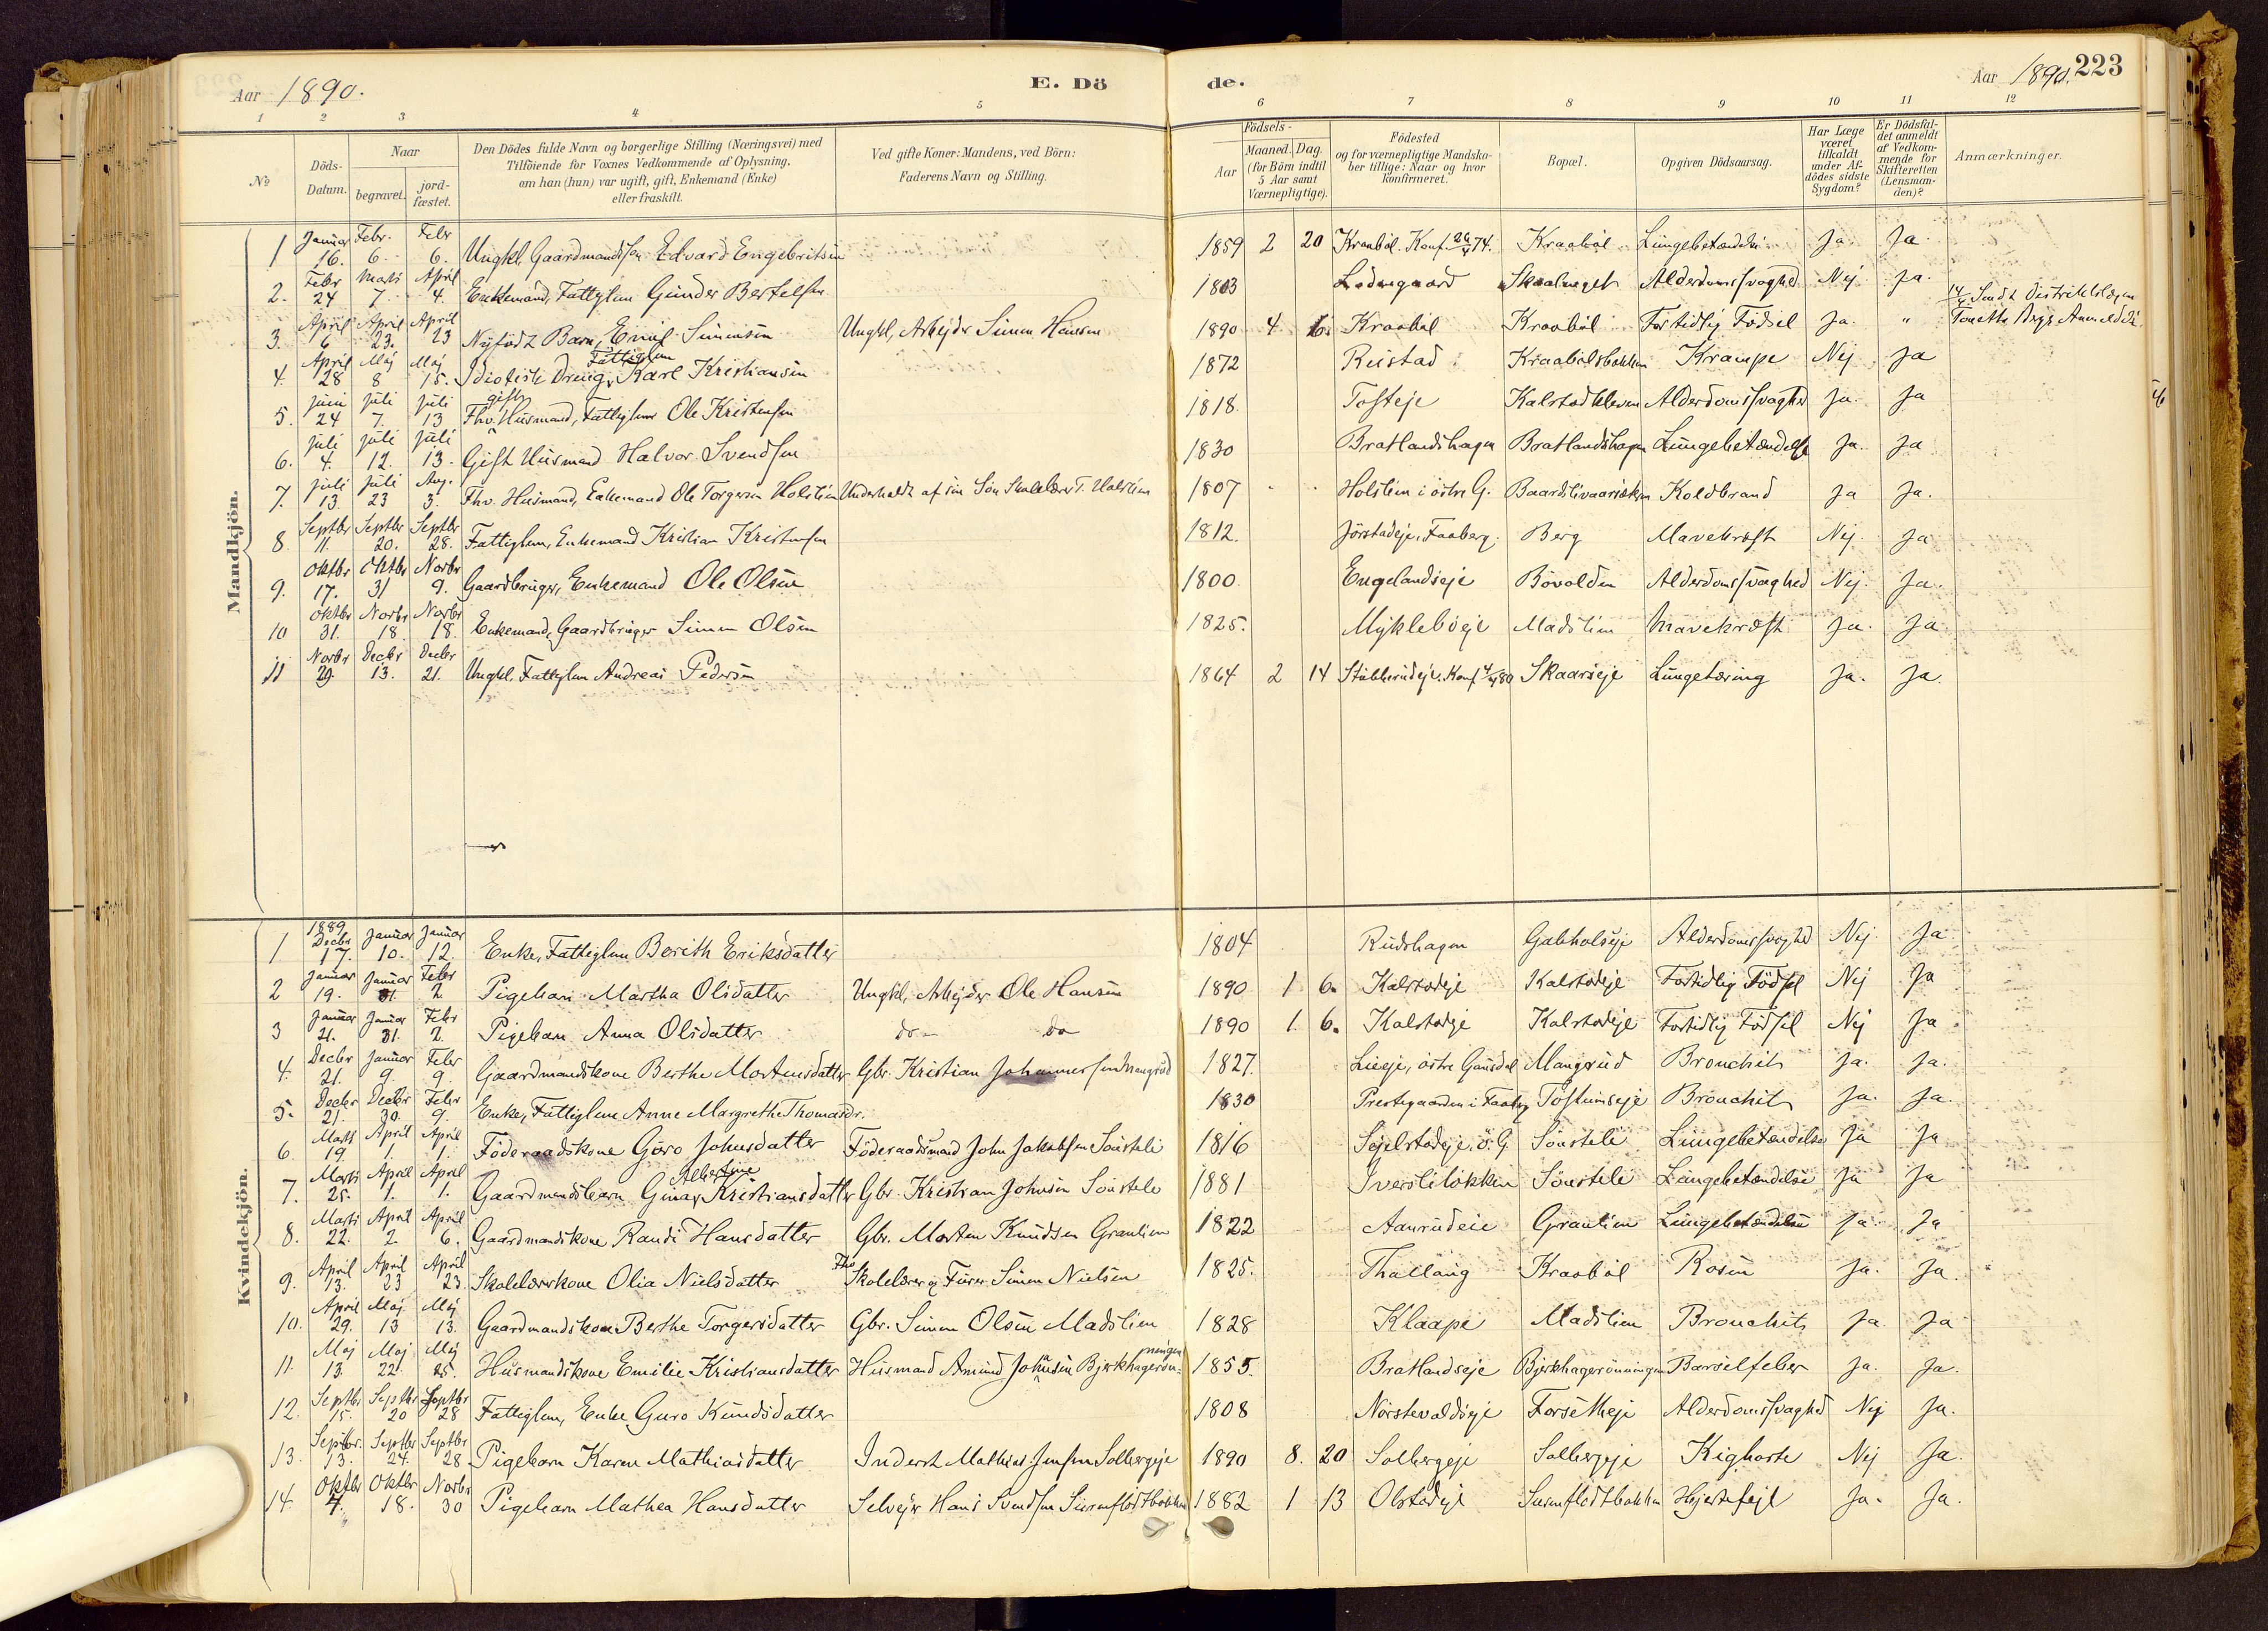 Aar 1890. E. Dö de. Aar 1890. 223
1 2 3 4 5 6 7 8 9 10 11 12
No Döds-Datum. Naar begravet. jord-fæstet. Den Dödes fulde Navn og borgerlige Stilling (Næringsvei) med Tilföiende for Voxnes Vedkommende af Oplysning, om han (hun) var ugift, gift, Enkemand (Enke) eller fraskilt. Ved gifte Koner: Mandens, ved Börn: Faderens Navn og Stilling. Födsels- Aar Maaned. Dag. (for Börn indtil 5 Aar samt Værnepligtige). Födested og for værnepligtige Mandskaber tillige: Naar og hvor konfirmeret. Bopæl. Opgiven Dödsaarsag. Har Læge været tilkaldt under Afdödes sidste Sygdom? Er Dödsfaldet anmeldt af Vedkommende for Skifteretten (Lensmanden)? Anmærkninger.
Mandkjön.
1 Januar 16. Febr. 6. Febr 6. Ungkl. Gaardmandssøn Edvard Engebritsen 1859 2 20 Kraabøl. Konf. 26/4 74. Kraabøl Lungebetændelse Ja. Ja.
2. Febr 24 Marts 7 April 4. Enkemand, Fattiglem Gunder Bertelsen 1803 Lodmgaard Skaalneget Alderdomssvaghed Nej Ja.
3. April 6 April 23. April 23 Nyfødt Barn, Emil Simensen Ungkl, Arbejder Simen Hansen 1890 4 6. Kraabøl Kraabøl Fortidlig Fødsel Ja. " 14/4 Sendt Distriktslægen Tonetta Bergs Anmeldelse
4. April 28 Maj 8 Maj 15. Idiotisk Dreng, Fattiglem Karl Kristiansen 1872 Rustad Kraabølsbakken Krampe Nej Ja
5. Juni 24 Juli 7. Juli 13 Fhv. gift Husmand, Fattiglem Ole Kristensen 1818. Tofteje Kalstadkleven Alderdomssvaghed Ja. Ja
6. Juli 4. Juli 12. Juli 13. Gift Husmand Halvor Svendsen 1830 Bratlandshagen Bratlandshagen Lungebetændelse Ja. Ja
7. Juli 13. Juli 23 Aug. 3. Fhv. Husmand, Enkemand Ole Torgersen Holstien Underholdt af sin Søn Skolelærer T. Holstien 1807 Holstien i østre G. Baardslivaarsækren Koldbrand Ja Ja.
8. Septbr 11. Septbr 20. Septbr 28. Fattiglem, Enkemand Kristian Kristensen 1812. Jørstadeje, Faaberg. Berg Mavekræft Nej. Ja
9. Oktbr 17. Oktbr 31 Novbr 9. Gaardbruger, Enkemand Ole Olsen 1800. Engelandseje Bøvolden Alderdomssvaghed Nej. Ja.
10 Oktbr 31. Novbr 18. Novbr 18. Enkemand, Gaardbruger Simen Olsen 1825. Myklebøeje Madslien Mavekræft Ja. Ja
11 Novbr 29. Decbr 13. Decbr 21. Ungkl. Fattiglem Andreas Pedersen 1864 2 14 Stubberudeje. Konf 4/4 80 Skaarseje Lungetæring Ja. Ja.
Kvindekjön.
1 1889 Decbr 17. Januar 10. Januar 12. Enke, Fattiglem Berith Eriksdatter 1804 Rudshagen Gabholseje Alderdomssvaghed Nej Ja
2 Januar 19. Januar 31 Febr 2 Pigebarn Martha Olsdatter Ungkl, Arbejder Ole Hansen 1890 1 6. Kalstadeje Kalstadeje Fortidlig Fødsel Nej Ja
3 Januar 21. Januar 31. Febr 2. Pigebarn Anna Olsdatter do- do 1890 1. 6. Kalstadeje Kalstadeje Fortidlig Fødsel Nej Ja
4. Decbr 21. Januar 9. Febr 9. Gaardmandskone Berthe Mortensdatter Gbr. Kristian Johannessen Mangrud 1827. Lieeje, østre Gausdal Mangrud Bronchit Ja. Ja.
5. Decbr 21. Decbr 30. Febr 9. Enke, Fattiglem Anne Margrethe Thomasdr. 1830 Prestegaarden i Faaberg Toftumseje Bronchit Ja. Ja.
6. Marts 19. April 1. April 1. Føderaadskone Guro Johnsdatter Føderaadsmand John Jakobsen Sønsteli 1816 Sejelstadeje, ø. G Sønsteli Lungebetændelse Ja Ja
7. Marts 25. April 1. April 1. Gaardmandsbarn Gina Albertine Kristiansdatter Gbr. Kristian Johnsen Sønsteli 1881 Iversliløkken Sønsteli Lungebetændelse Ja Ja
8. Marts 22. April 2. April 6. Gaardmandskone Randi Hansdatter Gbr. Morten Knudsen Granlien 1822 Aanrudeie Granlien Lungebetændelse Ja. Ja
9. April 13. April 23 April 23. Skolelærerkone Olia Nielsdatter Fhv Skolelærer og Furer Simen Nielsen 1825. Thallaug Kraabøl Rosen Ja. Ja.
10. April 29. Maj 13 Maj 13. Gaardmandskone Berthe Torgersdatter Gbr. Simen Olsen Madslien 1828 Klaape Madslien Bronchit Ja Ja
11. Maj 13. Maj 22. Maj 25. Husmandskone Emilie Kristiansdatter Husmand Amund Johnsen Bjerkhagerønningen 1855. Bratlandseje Bjerkhagerønningen Barselfeber Ja. Ja.
12. Septbr 15. Septbr 20 Septbr 28 Fattiglem, Enke Guro Knudsdatter 1808 Nørstevoldseje Forsetheje Alderdomssvaghed Nej Ja.
13. Septbr. 13. Septbr 24. Septbr 28 Pigebarn Karen Mathiasdatter Inderst Mathias Jensen Solbergeje 1890 8. 20 Solbergeje Solbergeje Kighoste Nej Ja.
14. Oktbr 4. Oktbr 18. Novbr 30 Pigebarn Mathea Hansdatter Selvejer Hans Svendsen Surnflødtbakken 1882 1 13 Olstadeje Surnflodtbakken Hjertefejl Ja. Ja.